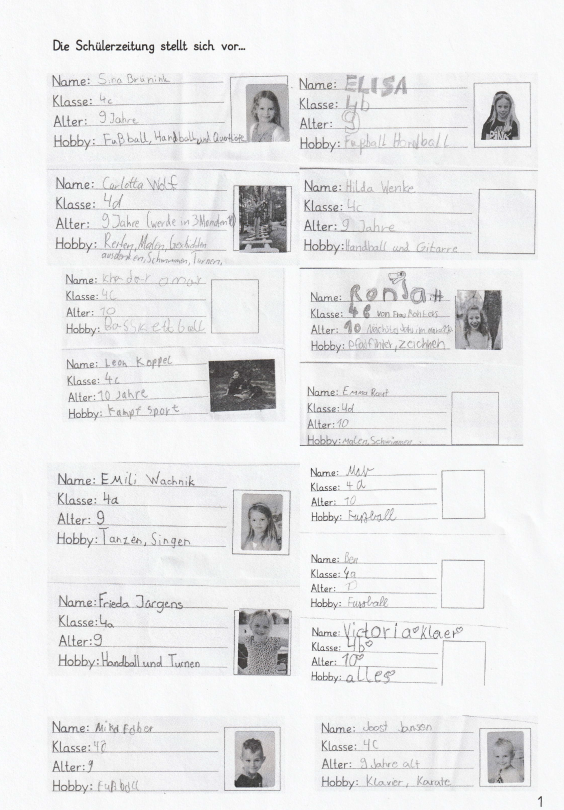 Die Schülerzeitung stellt sich vor...
Name: Sina Brünink
Klasse: 4c
Alter: 9 Jahre
Hobby: Fußball, Handball und
Name: ELISA
Klasse: 4b
Alter: 9
Hobby: Fußball Handball
Name: Carlotta Wolf
Klasse: 4d
Alter: 9 Jahre (werde in 3 Monaten
Hobby: Reiten, Malen,
Schwimmen, Turnen,
Name: Hilda Wenke
Klasse: 4c
Alter: 9 Jahre
Hobby: Handball und Gitarre
Name: omar
Klasse: 4c
Alter: 10
Hobby: Basskettball
Name: Ronja
Klasse: von Frau
Alter: 10
Hobby: Pfadfinder, zeichnen
Name: Leon Koppel
Klasse: 4c
Alter: 10 Jahre
Hobby: Kampfsport
Name: Emma
Klasse: 4d
Alter: 10
Hobby: Malen,
Name: EMili Wachnik
Klasse: 4a
Alter: 9
Hobby: Tanzen, Singen
Name:
Klasse: 4d
Alter: 10
Hobby: Fußball
Name: Ben
Klasse: 4a
Alter:
Hobby: Fussball
Name: Frieda Jürgens
Klasse: 4a
Alter: 9
Hobby: Handball und Turnen
Name: Victoria
Klasse: 4b
Alter: 10
Hobby: alles
Name: Mika
Klasse:
Alter: 9
Hobby: Fußball
Name: Joost Jansen
Klasse: 4C
Alter: 9 Jahre alt
Hobby: Klavier, Karate
1